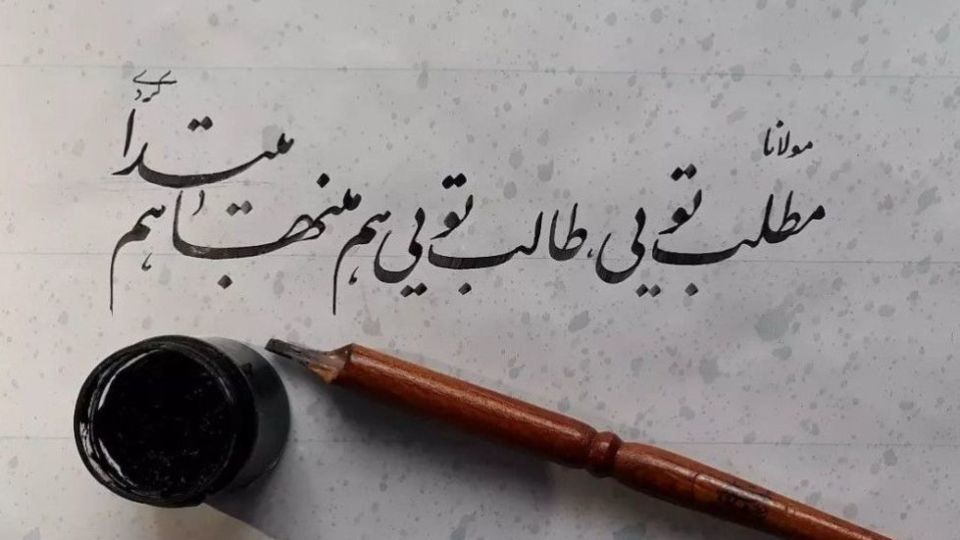 مولانا
مطلب تویی طالب تویی هم منتها هم مبتدا